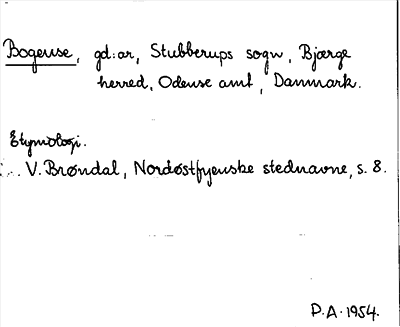 Bogense, gd:ar, Stubberups sogn, Bjærge
herred, Odense amt, Danmark.
Etymologi.
V. Brøndal, Nordøstfyenske stednavne, s. 8.
P.A. 1954.